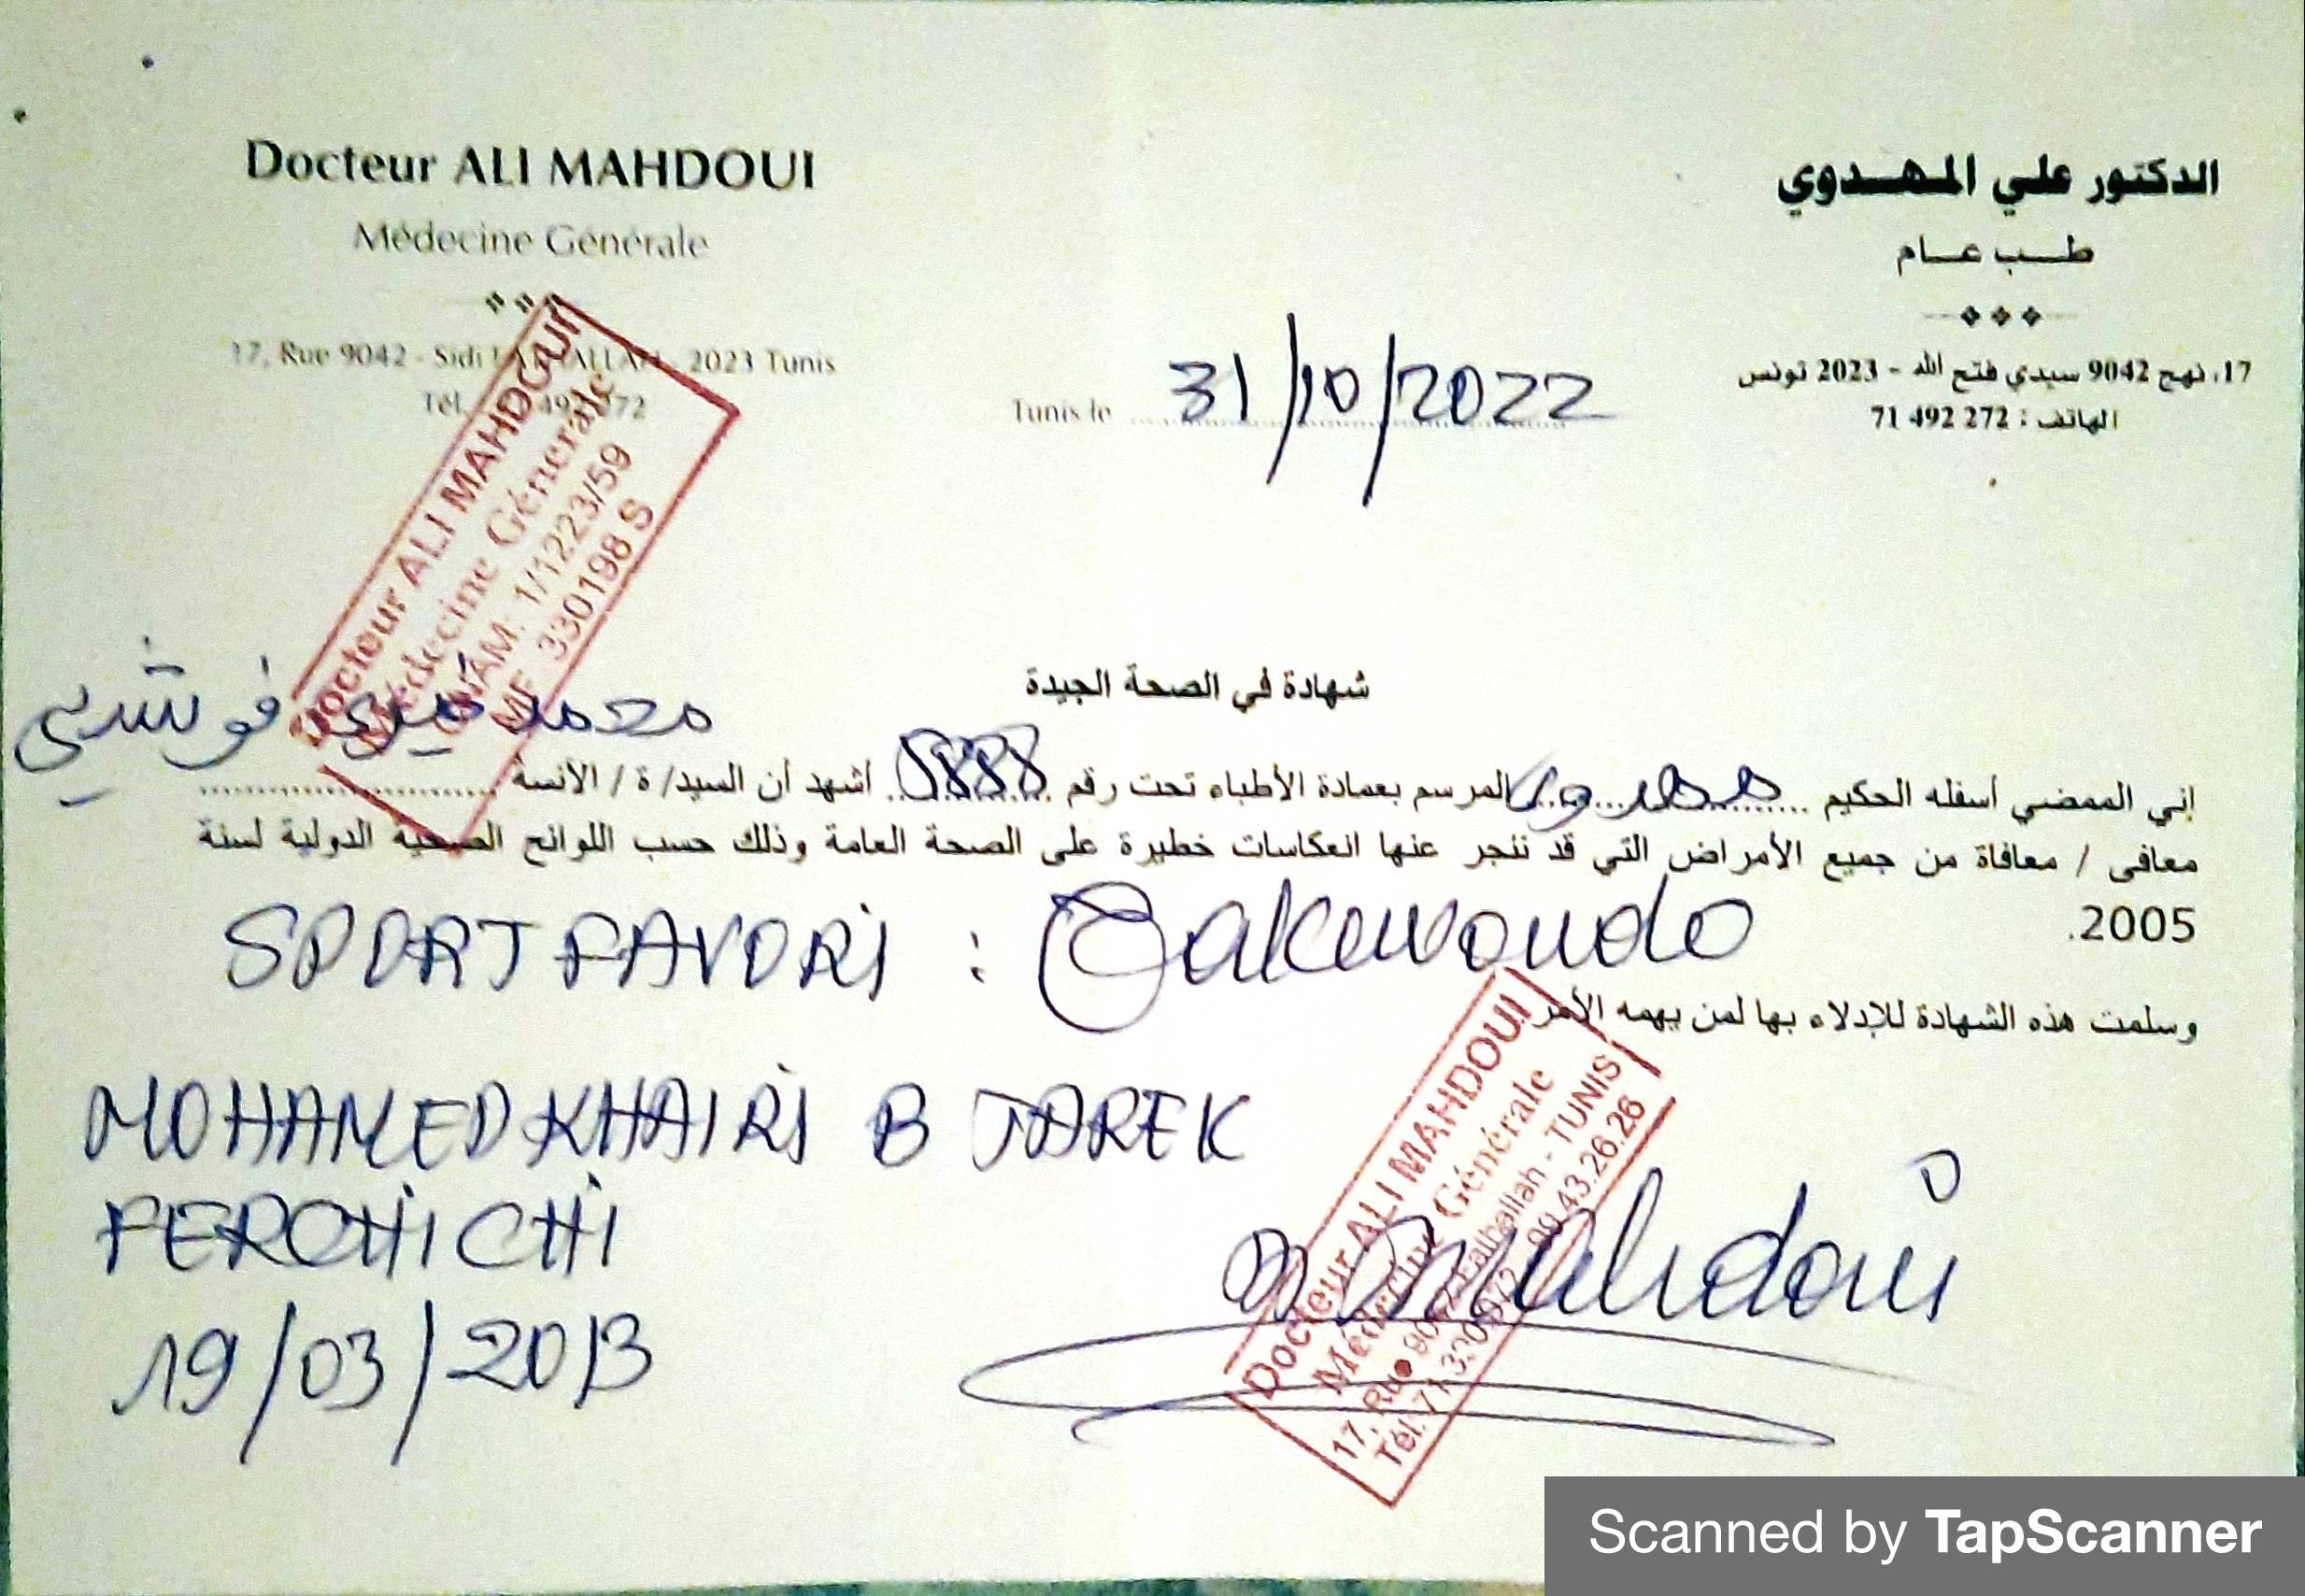 Docteur ALI MAHDOUI
Médecine Générale
17, Rue 9042 - Sidi FATHALLAH - 2023 Tunis
Tél. 492 272
الدكتور علي المهدوي
طب عام
17، نهج 9042 سيدي فتح الله - 2023 تونس
الهاتف : 272 492 71
Tunis le 31/10/2022
Docteur ALI MAHDOUI
Médecine Générale
CNAM: 1/11223/59
MF 330198 S
شهادة في الصحة الجيدة
إني الممضي أسفله الحكيم المرسم بعمادة الأطباء تحت رقم 8888 أشهد أن السيد/ ة / الآنسة محمد خيري فرشيشي
معافى / معافاة من جميع الأمراض التي قد تنجر عنها انعكاسات خطيرة على الصحة العامة وذلك حسب اللوائح الصحية الدولية لسنة
2005.
SPORT FAVORI : Taekwondo
وسلمت هذه الشهادة للإدلاء بها لمن يهمه الأمر.
MOHAMED KHAIRI B TAREK
FERCHICHI
19/03/2013
Docteur ALI MAHDOUI
Médecine Générale
17, Rue 9042 Fathallah - TUNIS
Tél. 71 330 98.43.26.26
Mahdoui
Scanned by TapScanner